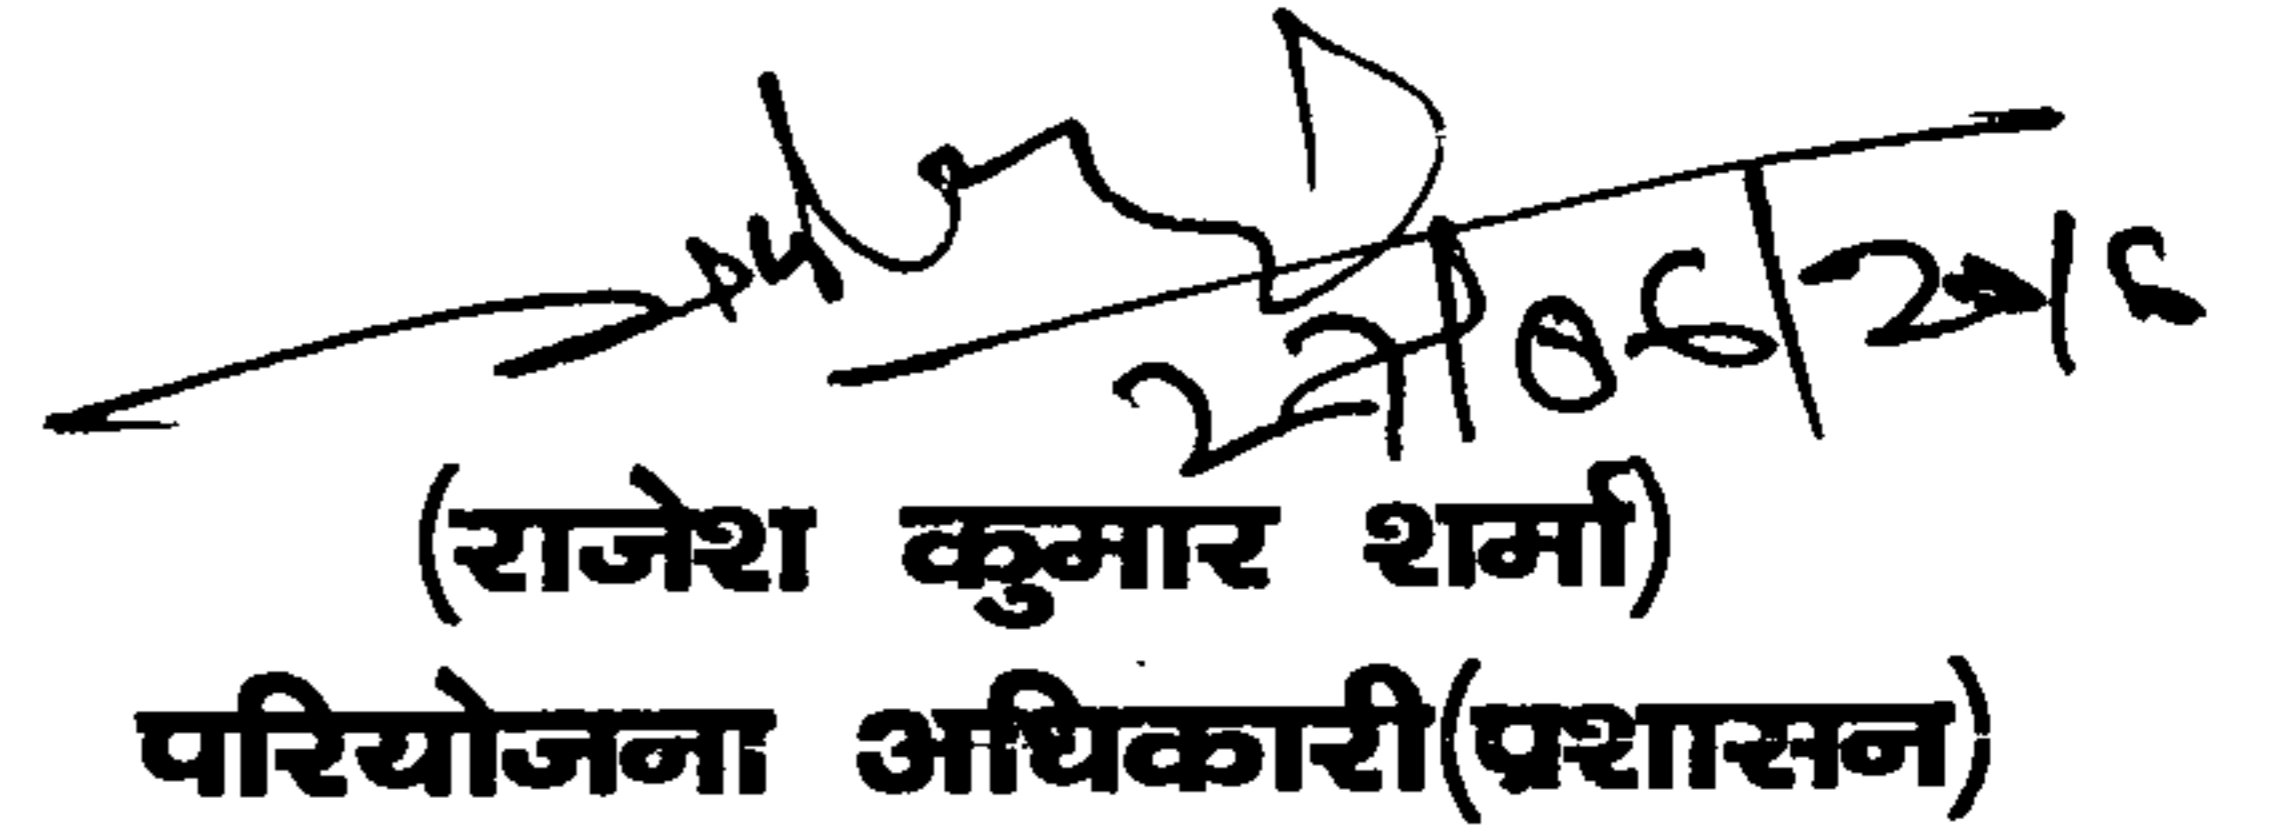 22/06/2016
(राजेश कुमार शर्मा)
परियोजना अधिकारी(प्रशासन)